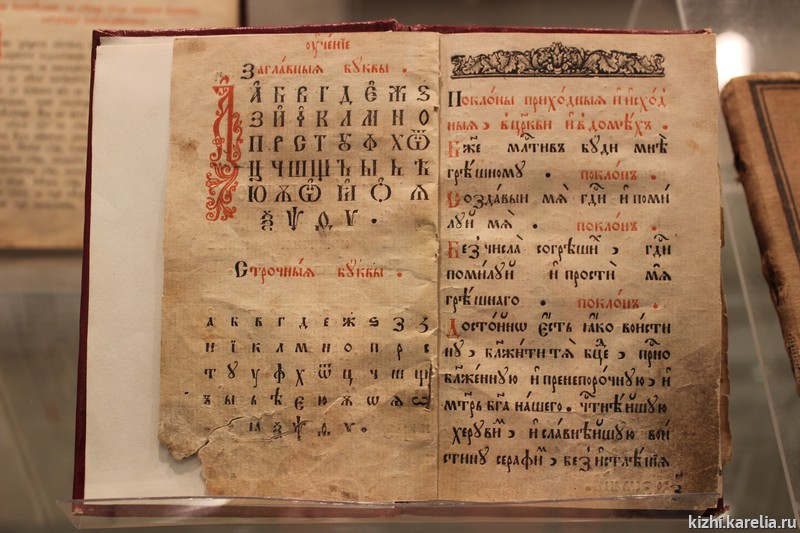 оуче́нїе
Заглавныя буквы .
А Б В Г Д Е Ж Ѕ
З И І К Л М Н О
П Р С Т У Ф Х Ѿ
Ц Ч Ш Щ Ъ Ы Ь Ѣ
Ю Ѫ Ѿ Ꙗ Ѻ Ѧ
Ѯ Ѱ Ѳ Ѵ .
Строчныя буквы .
а б в г д е ж ѕ з
и ї к л м н о п р с
т у ф х ѿ ц ч ш щ
ъ ы ь ѣ є ю ѫ ѡ ѧ
ꙗ ѯ ѱ ѳ ѵ .
Поклоны приходныя и исход
ныя , в церкви и в домѣхъ .
Бж҃е млⷭ҇тивъ буди мнѣ
грѣшному . поклонъ .
Создавыи мѧ гдⷭ҇и и поми
луй мѧ . поклонъ .
Без числа согрѣшиⷯ , гдⷭ҇и
помилуй и прости мѧ
грѣшнаго . поклонъ .
Достойно єсть ꙗко воисти
ну , блажити тѧ бцⷣе , прⷭ҇но
блаженную и пренепорочную , и
мт҃рь бг҃а нашего . чтⷭ҇нѣйшую
херувиⷨ , и славнѣйшую вои
стину серафиⷨ , без истлѣнїя
kizhi.karelia.ru